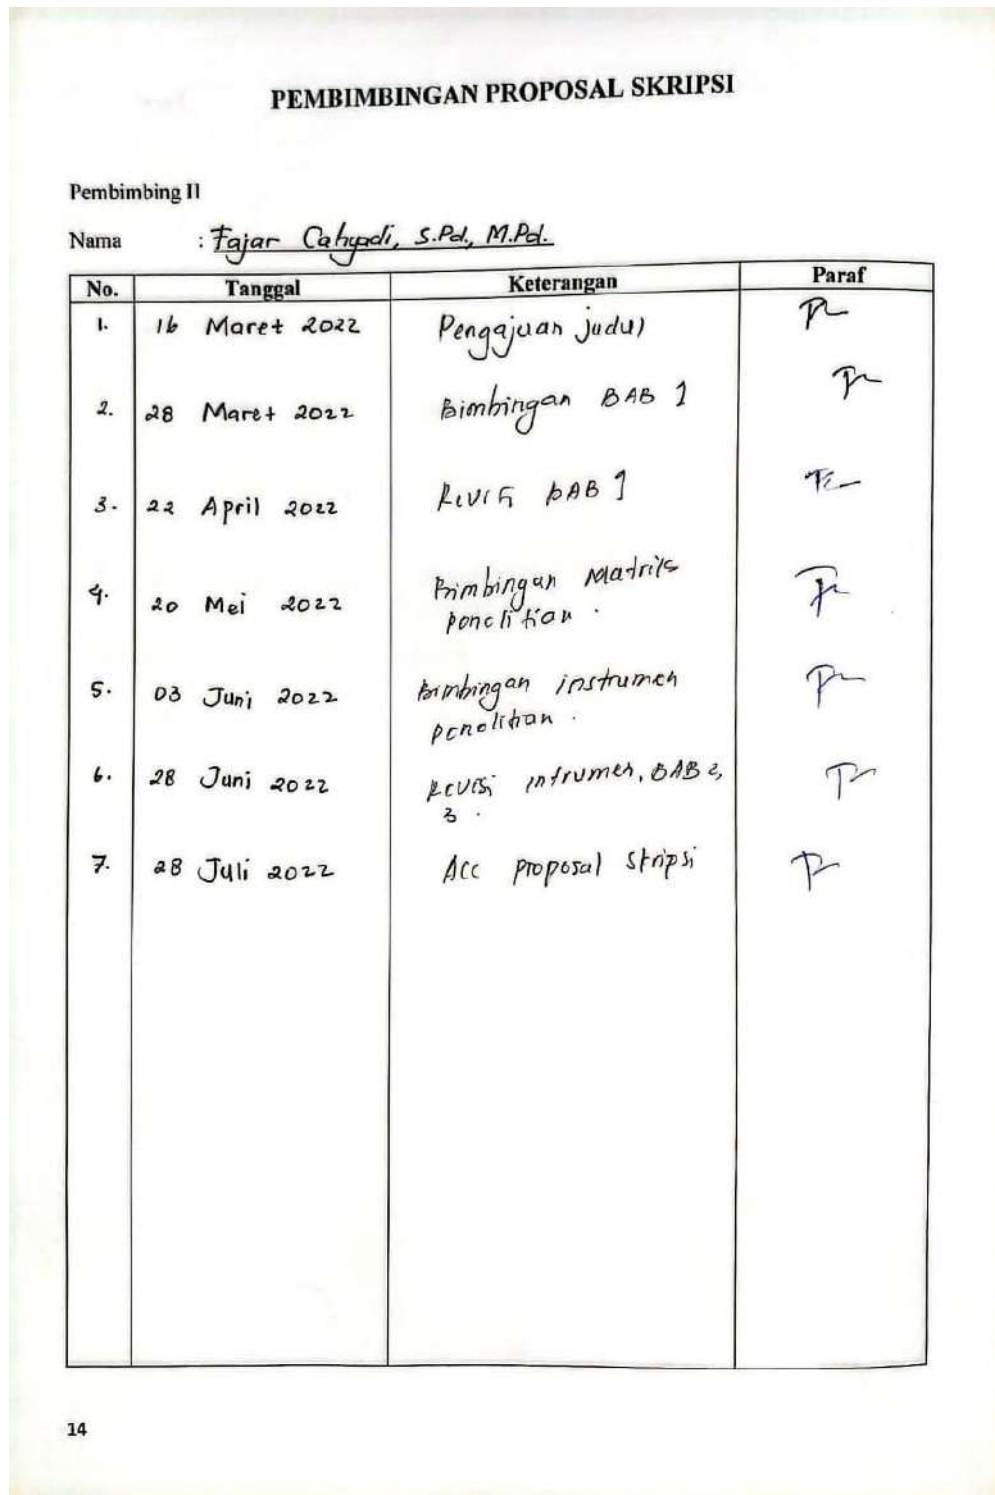 PEMBIMBINGAN PROPOSAL SKRIPSI
Pembimbing II
Nama : Fajar Cahyadi, S.Pd., M.Pd.
No. Tanggal Keterangan Paraf
1. 16 Maret 2022 Pengajuan judul
2. 28 Maret 2022 Bimbingan BAB 1
3. 22 April 2022 Revisi BAB 1
4. 20 Mei 2022 Bimbingan Matriks
penelitian.
5. 03 Juni 2022 Bimbingan instrumen
penelitian.
6. 28 Juni 2022 Revisi intrumen, BAB 2,
3.
7. 28 Juli 2022 Acc proposal skripsi
14